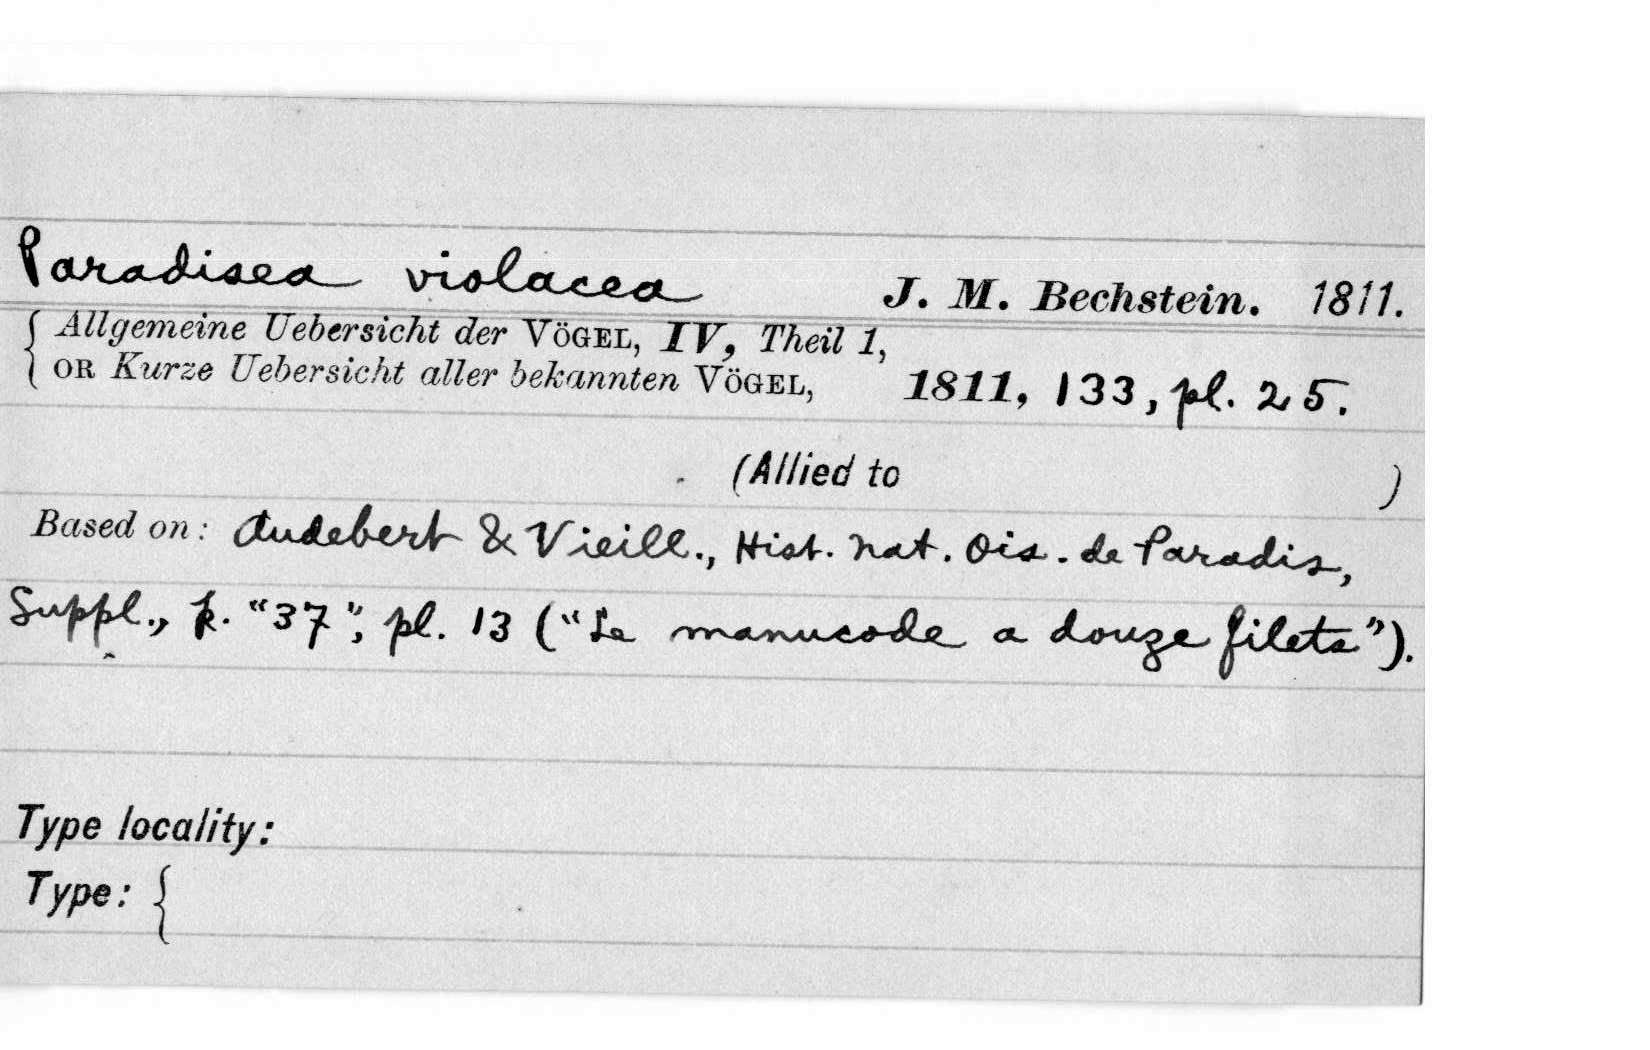 Paradisea violacea J. M. Bechstein. 1811.
{ Allgemeine Uebersicht der VÖGEL, IV, Theil 1,
OR Kurze Uebersicht aller bekannten VÖGEL, 1811, 133, pl. 25.
(Allied to )
Based on: Audebert & Vieill., Hist. nat. Ois. de Paradis,
Suppl., p. "37", pl. 13 ("Le manucode a douze filets").
Type locality:
Type: {